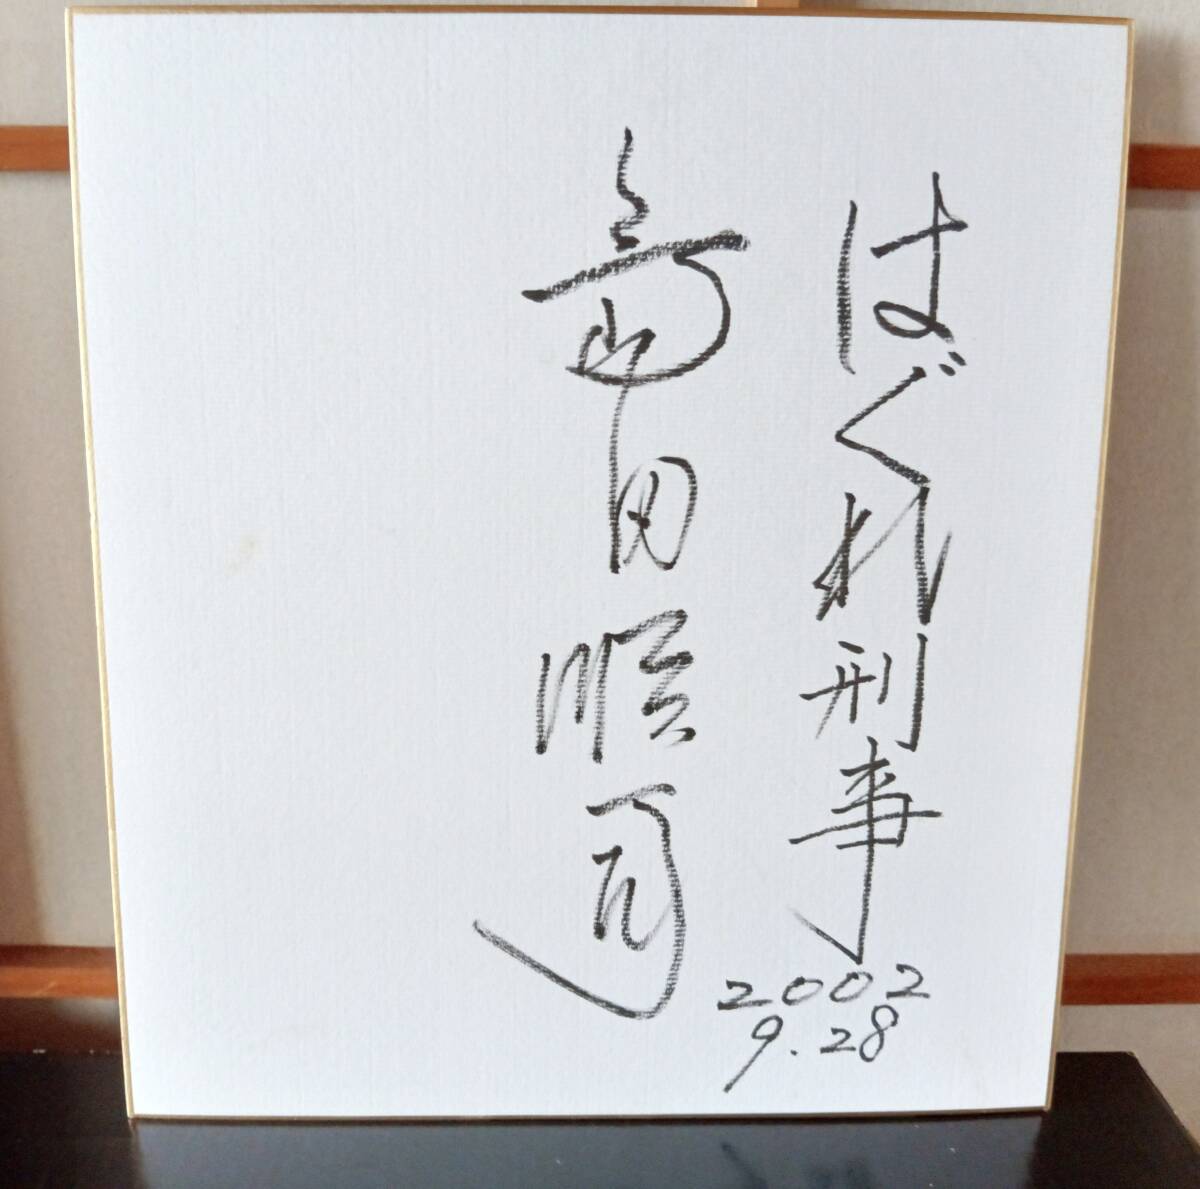 はぐれ刑事
2002
9.28
島田順司